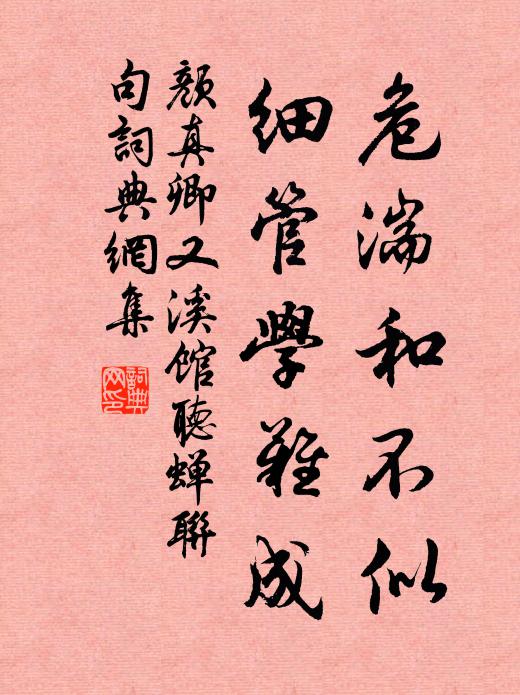 危湍和不似
细管學難成
顏真卿又溪馆聽蝉聯
句詞典網集
詞典
网印